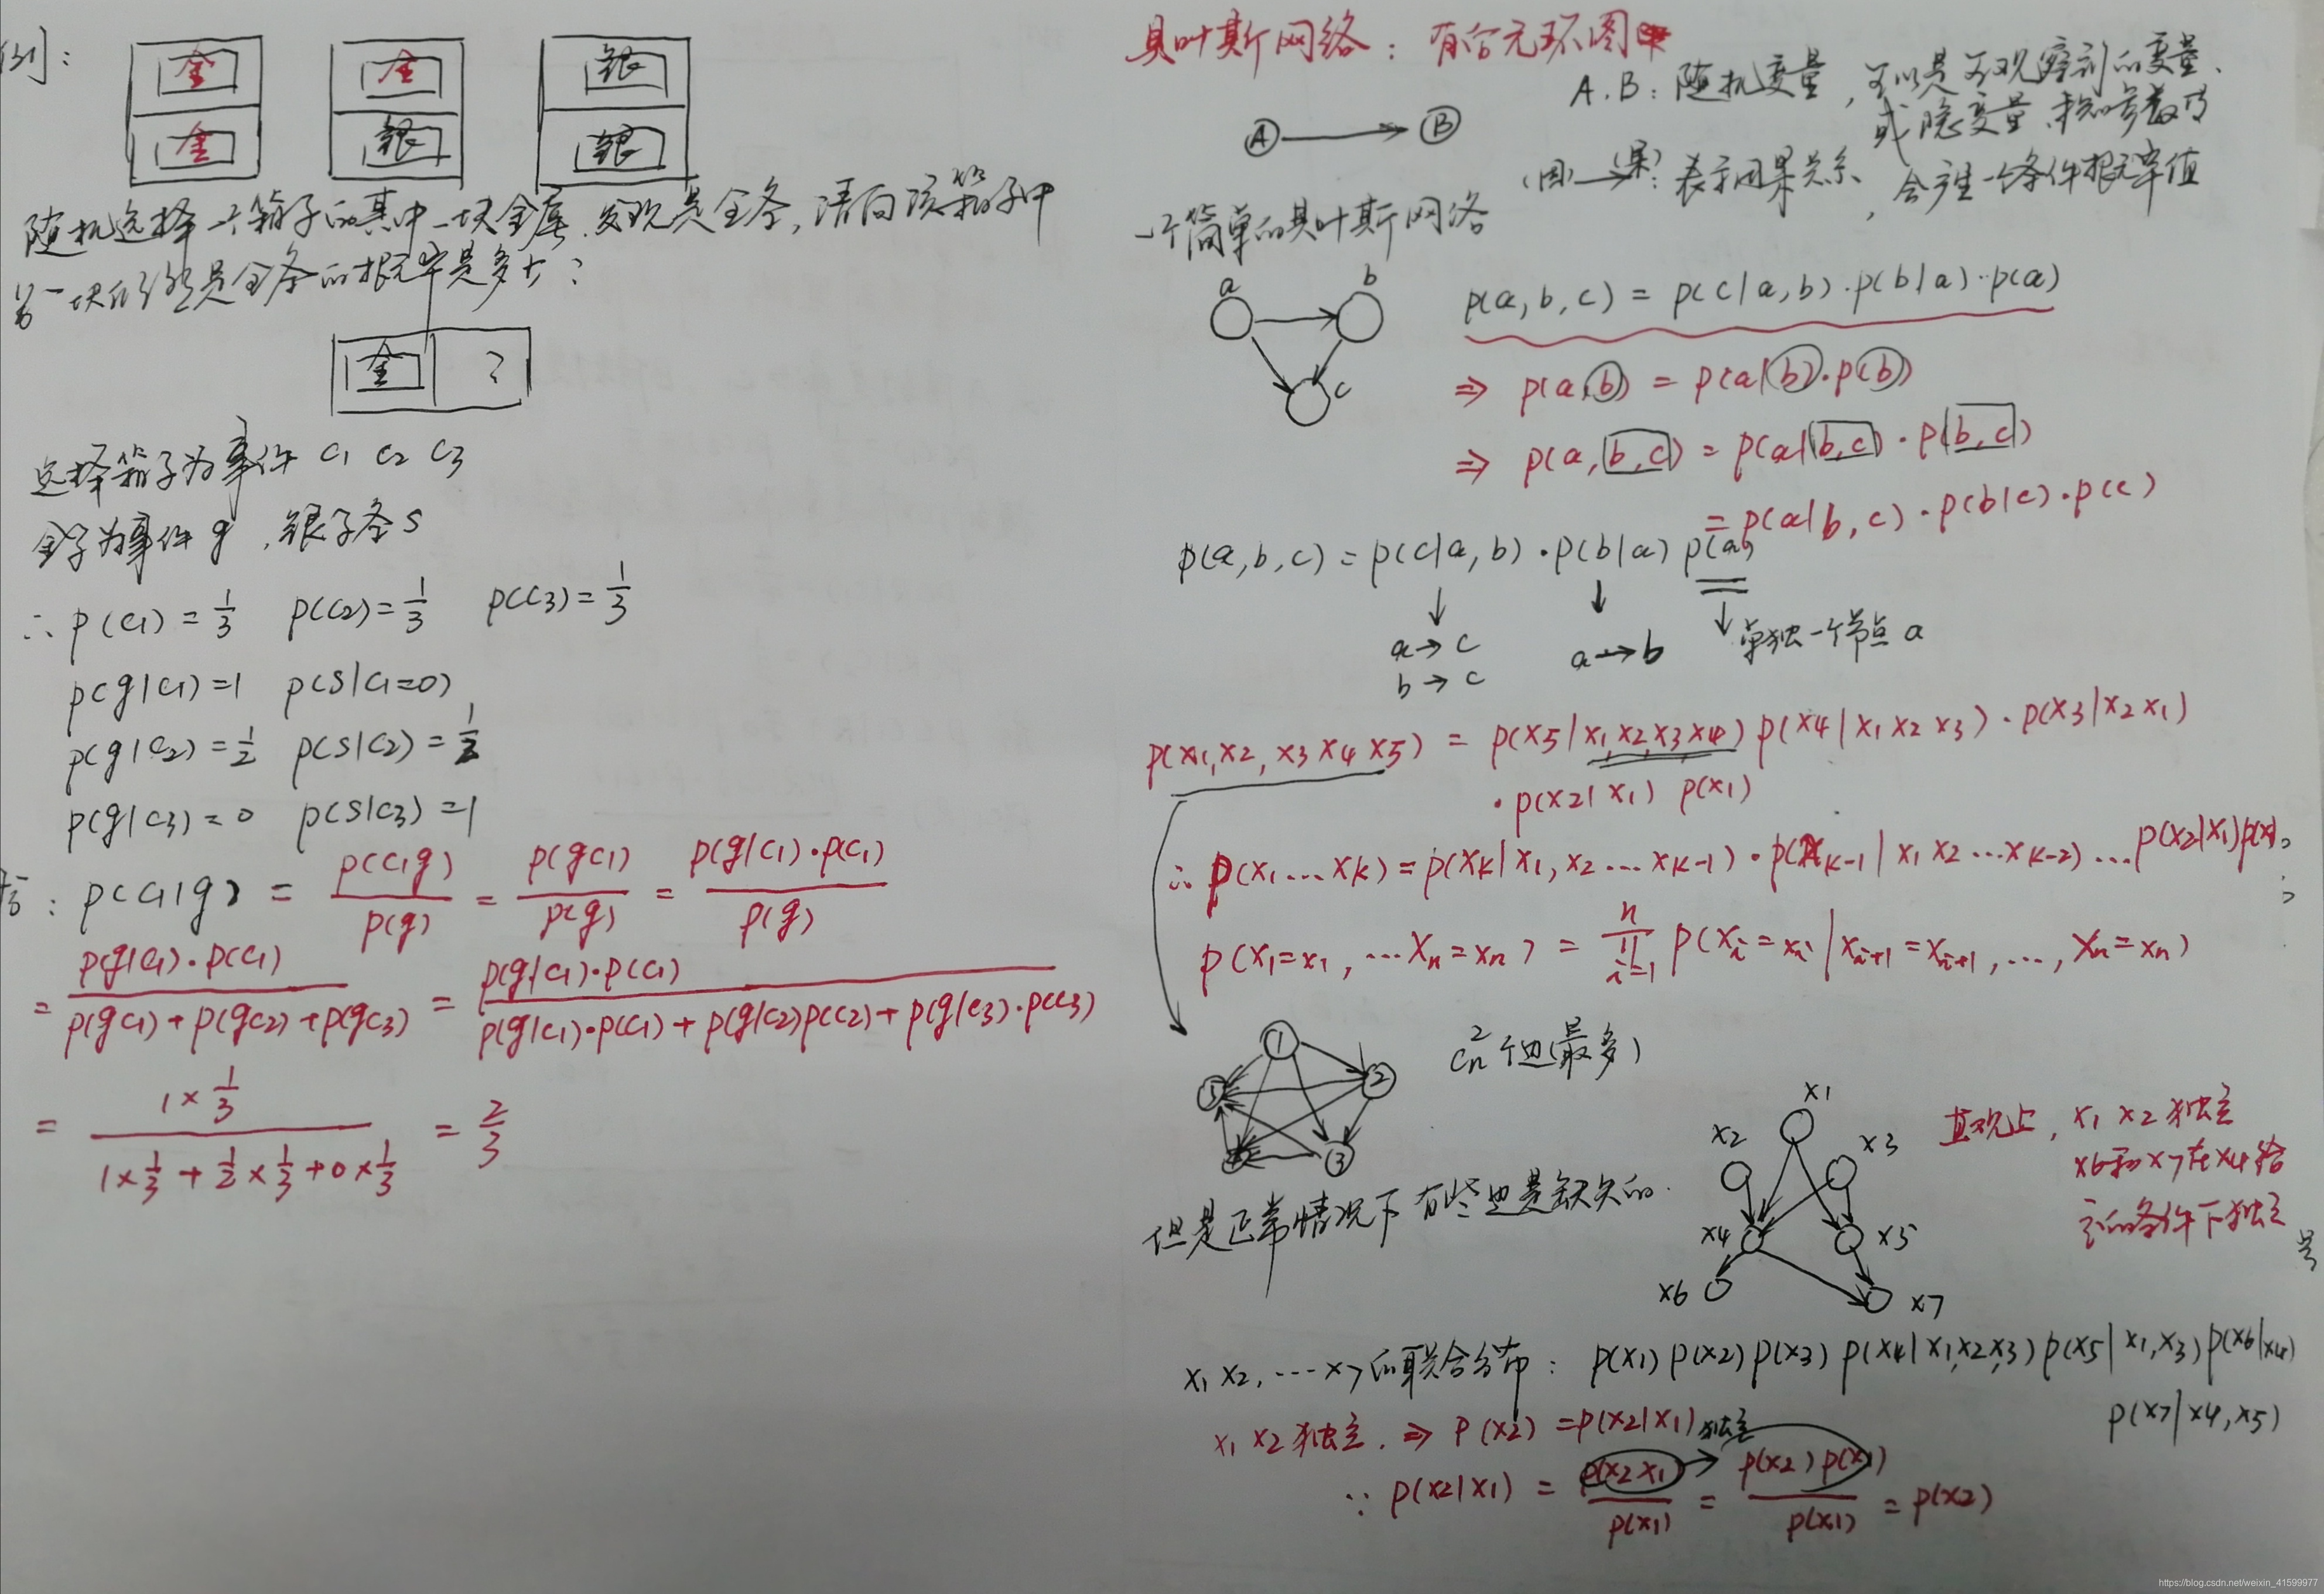 例:
金 金 银
金 银 银
随机选择一个箱子的其中一块金属,发现是金条,请问该箱子中
另一块仍然是金条的概率是多大?
金 ?
选择箱子为事件 C1 C2 C3
金子为事件 g ,银子条 S
∴ p(C1) = 1/3 p(C2) = 1/3 p(C3) = 1/3
p(g|C1) = 1 p(S|C1=0)
p(g|C2) = 1/2 p(S|C2) = 1/2
p(g|C3) = 0 p(S|C3) = 1
: p(C1|g) = p(C1g)/p(g) = p(gC1)/p(g) = p(g|C1)·p(C1)/p(g)
= p(g|C1)·p(C1)/p(gC1)+p(gC2)+p(gC3) = p(g|C1)·p(C1)/p(g|C1)·p(C1)+p(g|C2)p(C2)+p(g|C3)·p(C3)
= 1×1/3 / 1×1/3+1/2×1/3+0×1/3 = 2/3
贝叶斯网络: 有向无环图
A.B: 随机变量,可以是可观察到的变量、
或隐变量、未知参数等
A → B
(因)→(果): 表示因果关系,会产生一个条件概率值
一个简单的贝叶斯网络
a b
c
p(a,b,c) = p(c|a,b)·p(b|a)·p(a)
⇒ p(a,b) = p(a|b)·p(b)
⇒ p(a,b,c) = p(a|b,c)·p(b,c)
= p(a|b,c)·p(b|c)·p(c)
p(a,b,c) = p(c|a,b)·p(b|a) p(a)
a→c a→b 单独一个节点 a
b→c
p(x1,x2,x3 x4 x5) = p(x5|x1,x2,x3 x4) p(x4|x1 x2 x3)·p(x3|x2 x1)
·p(x2|x1) p(x1)
∴ p(x1...xk) = p(xk|x1,x2...xk-1)·p(xk-1|x1 x2...xk-2)...p(x2|x1)p(x1)
p(X1=x1,...Xn=xn) = ∏ n i=1 p(Xi=xi|Xi+1=xi+1,...,Xn=xn)
1
5 2
3
Cn2 个边(最多)
但是正常情况下有些边是缺失的.
x1
x2 x3
x4 x5
x6 x7
直观上,x1 x2 独立
x6和x7在x4给
定的条件下独立
x1 x2,...x7的联合分布: p(x1)p(x2)p(x3)p(x4|x1,x2,x3)p(x5|x1,x3)p(x6|x4)
p(x7|x4,x5)
x1 x2 独立. ⇒ p(x2) = p(x2|x1) 独立
∵ p(x2|x1) = p(x2 x1)/p(x1) = p(x2)p(x1)/p(x1) = p(x2)
https://blog.csdn.net/weixin_41599977